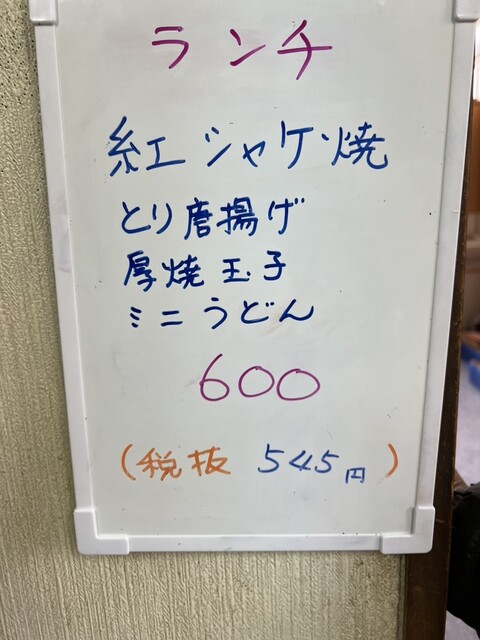 ランチ
紅シャケ焼
とり唐揚げ
厚焼玉子
ミニうどん
600
(税抜 545円)